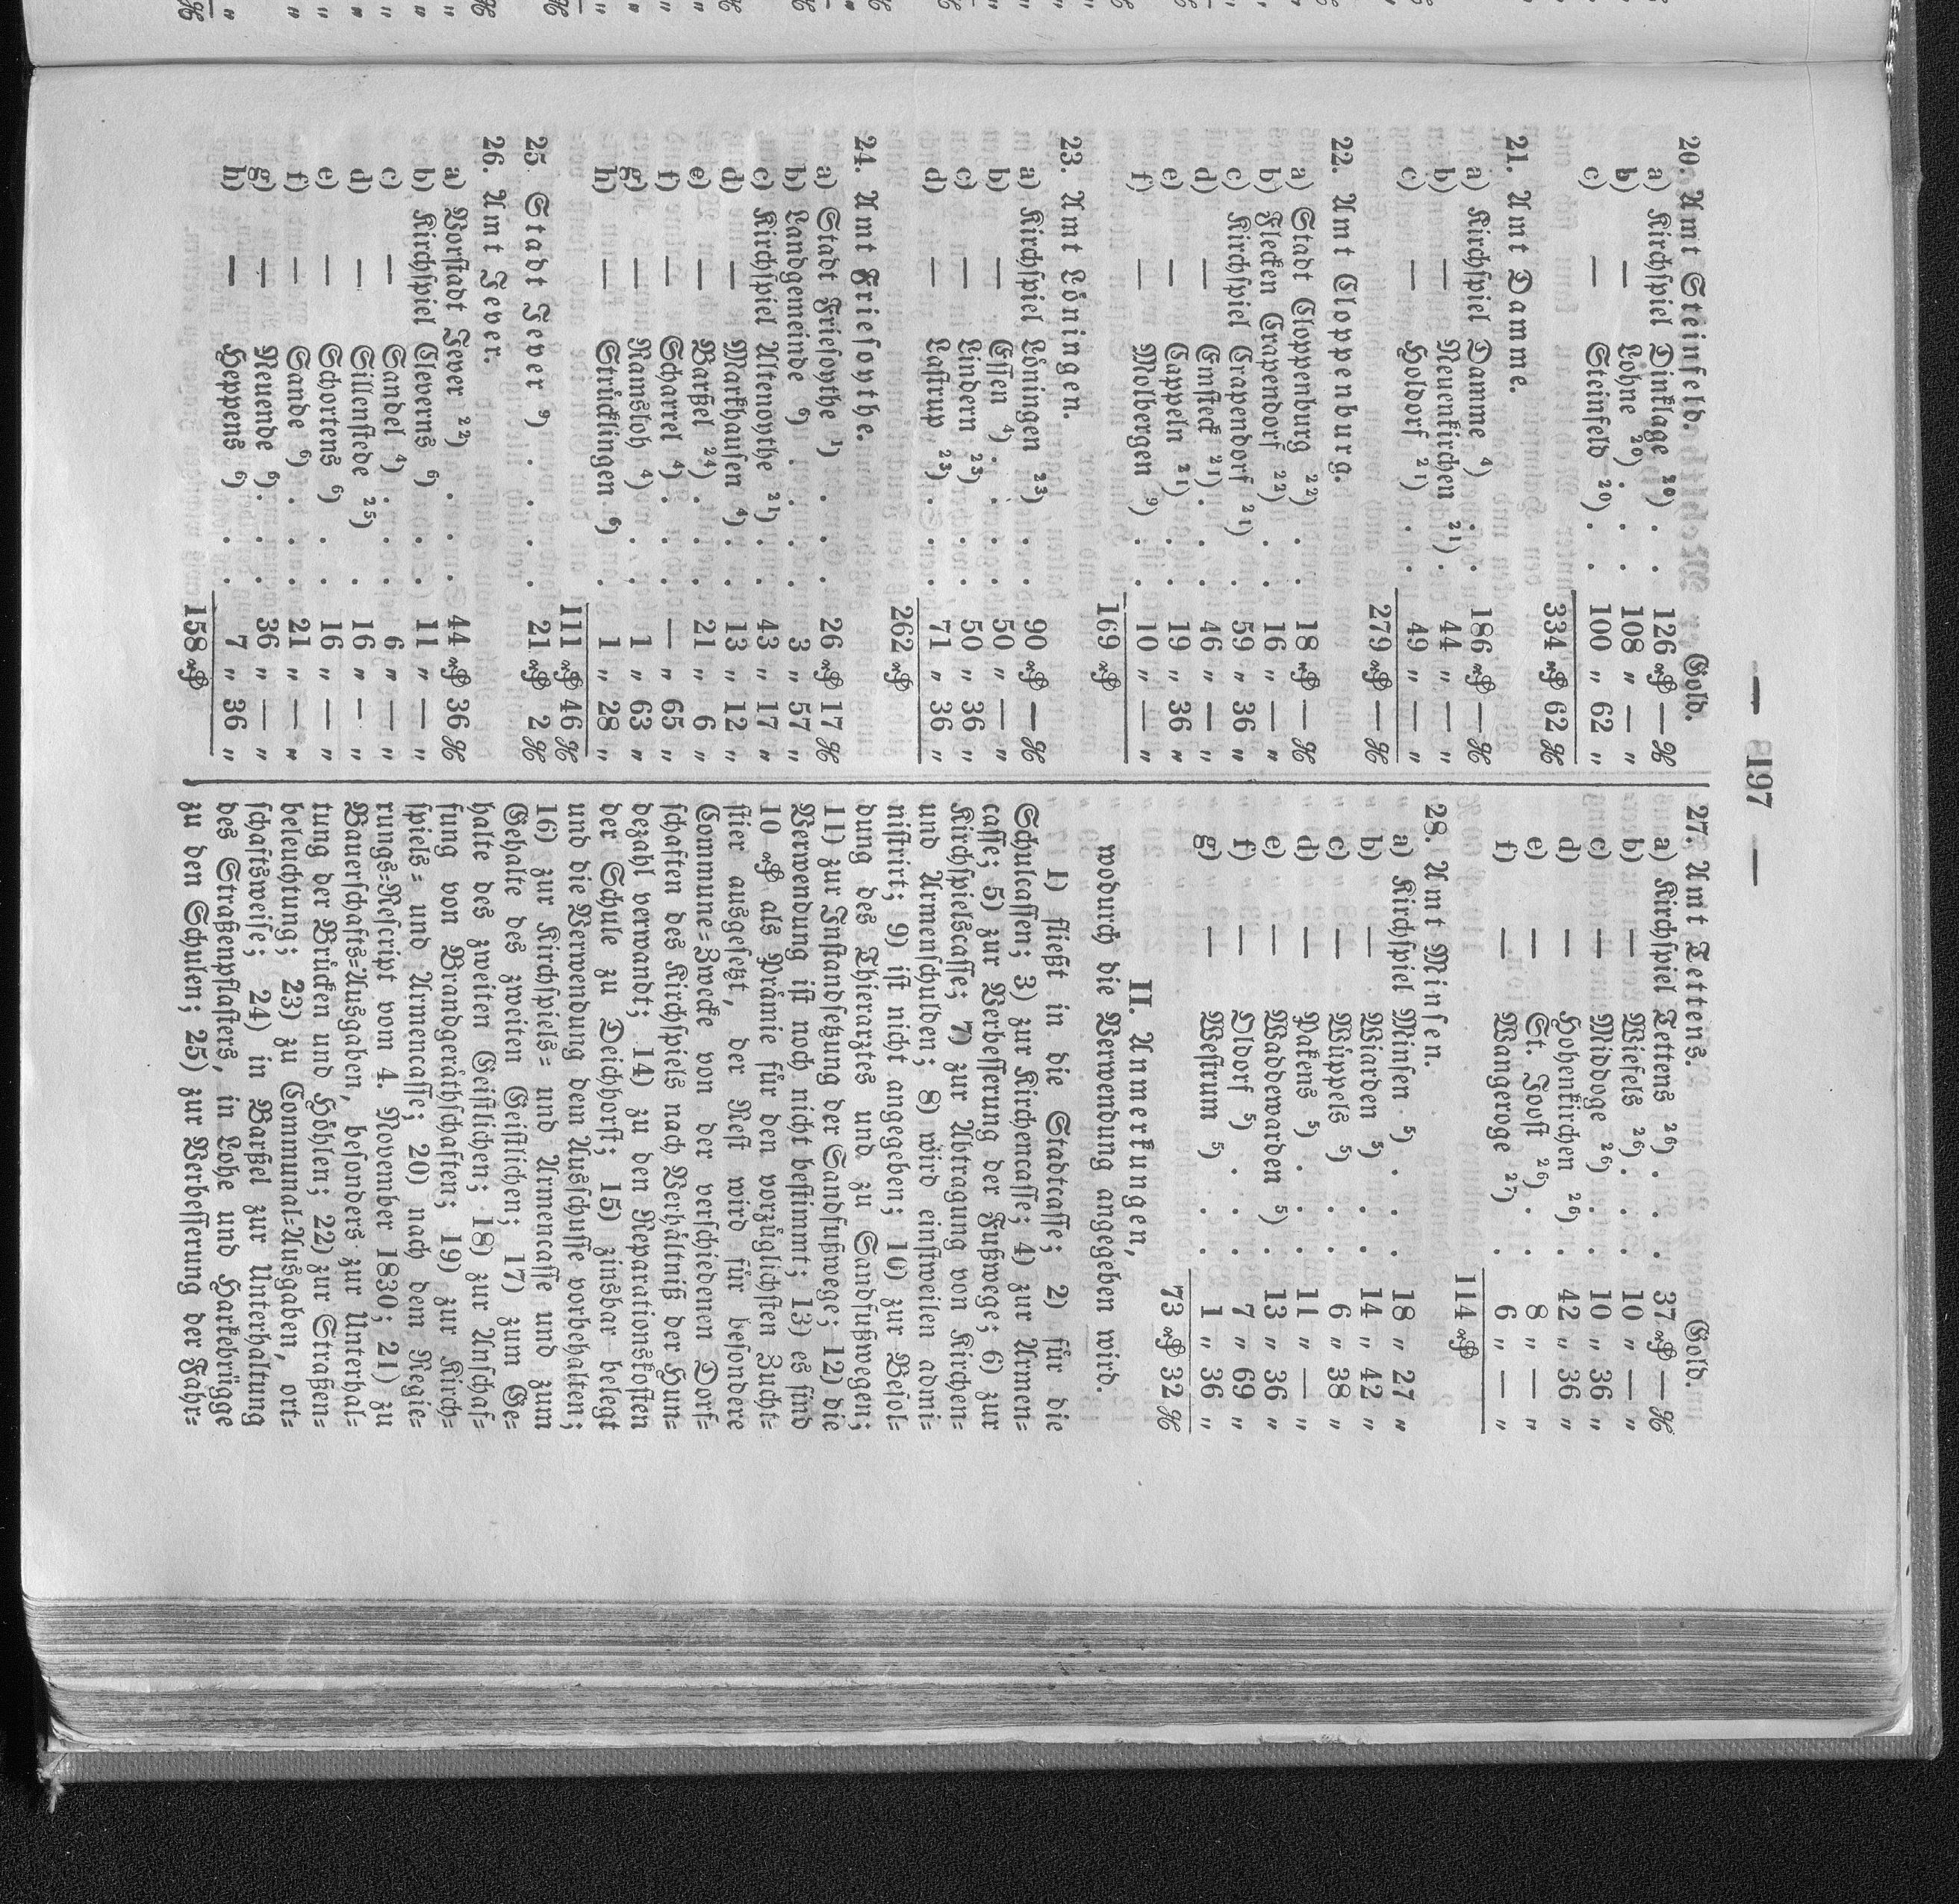 — 197 —
Gold.
20. Amt Steinfeld.
a) Kirchspiel Dinklage ²⁰) . . 126 ₰ — ℋ
b) — Lohne ²⁰) . . . 108 „ — „
c) — Steinfeld ²⁰) . . 100 „ 62 „
334 ₰ 62 ℋ
21. Amt Damme.
a) Kirchspiel Damme ⁴) . . . 186 ₰ — ℋ
b) — Neuenkirchen ²¹) . 44 „ — „
c) — Holdorf ²¹) . . . 49 „ — „
279 ₰ — ℋ
22. Amt Cloppenburg.
a) Stadt Cloppenburg ²²) . . 18 ₰ — ℋ
b) Flecken Crapendorf ²²) . . 16 „ — „
c) Kirchspiel Crapendorf ²¹) . 59 „ 36 „
d) — Emsteck ²¹) . . . 46 „ — „
e) — Cappeln ²¹) . . . 19 „ 36 „
f) — Molbergen ⁹) . . 10 „ — „
169 ₰
23. Amt Löningen.
a) Kirchspiel Löningen ²³) . . 90 ₰ — ℋ
b) — Essen ⁴) . . . . 50 „ — „
c) — Lindern ²³) . . . 50 „ 36 „
d) — Lastrup ²³) . . . 71 „ 36 „
262 ₰
24. Amt Friesoythe.
a) Stadt Friesoythe ¹) . . . 26 ₰ 17 ℋ
b) Landgemeinde ⁹) . . . . 3 „ 57 „
c) Kirchspiel Altenoythe ²¹) . . 43 „ 17 „
d) — Markhausen ⁴) . . 13 „ 12 „
e) — Barßel ²⁴) . . . 21 „ 6 „
f) — Scharrel ⁴) . . . — „ 65 „
g) — Ramsloh ⁴) . . . 1 „ 63 „
h) — Strücklingen ⁶) . . 1 „ 28 „
111 ₰ 46 ℋ
25. Stadt Jever ⁹) . . . . 21 ₰ 2 ℋ
26. Amt Jever.
a) Vorstadt Jever ²²) . . . 44 ₰ 36 ℋ
b) Kirchspiel Cleverns ⁶) . . 11 „ — „
c) — Sandel ⁴) . . . 6 „ — „
d) — Sillenstede ²⁵) . . 16 „ — „
e) — Schortens ⁶) . . 16 „ — „
f) — Sande ⁶) . . . . 21 „ — „
g) — Neuende ⁶) . . . 36 „ — „
h) — Heppens ⁶) . . . 7 „ 36 „
158 ₰
Gold.
27. Amt Tettens.
a) Kirchspiel Tettens ²⁶) . . . 37 ₰ — ℋ
b) — Wiefels ²⁶) . . . 10 „ — „
c) — Middoge ²⁶) . . . 10 „ 36 „
d) — Hohenkirchen ²⁶) . 42 „ 36 „
e) — St. Joost ²⁶) . . . 8 „ — „
f) — Wangeroge ²⁷) . . 6 „ — „
114 ₰
28. Amt Minsen.
a) Kirchspiel Minsen ⁵) . . . 18 „ 27 „
b) — Wiarden ⁵) . . . 14 „ 42 „
c) — Wüppels ⁵) . . . 6 „ 38 „
d) — Pakens ⁵) . . . . 11 „ — „
e) — Waddewarden ⁵) . 13 „ 36 „
f) — Oldorf ⁵) . . . . 7 „ 69 „
g) — Westrum ⁵) . . . 1 „ 36 „
73 ₰ 32 ℋ
II. Anmerkungen,
wodurch die Verwendung angegeben wird.
1) fließt in die Stadtcasse; 2) für die
Schulcassen; 3) zur Kirchencasse; 4) zur Armen=
casse; 5) zur Verbesserung der Fußwege; 6) zur
Kirchspielscasse; 7) zur Abtragung von Kirchen=
und Armenschulden; 8) wird einstweilen admi=
nistrirt; 9) ist nicht angegeben; 10) zur Besol=
dung des Thierarztes und zu Sandfußwegen;
11) zur Instandsetzung der Sandfußwege; 12) die
Verwendung ist noch nicht bestimmt; 13) es sind
10 ₰ als Prämie für den vorzüglichsten Zucht=
stier ausgesetzt, der Rest wird für besondere
Commune=Zwecke von der verschiedenen Dorf=
schaften des Kirchspiels nach Verhältniß der Hun=
dezahl verwandt; 14) zu den Reparationskosten
der Schule zu Deichhorst; 15) zinsbar belegt
und die Verwendung dem Ausschusse vorbehalten;
16) zur Kirchspiels= und Armencasse und zum
Gehalte des zweiten Geistlichen; 17) zum Ge=
halte des zweiten Geistlichen; 18) zur Anschaf=
fung von Brandgeräthschaften; 19) zur Kirch=
spiels= und Armencasse; 20) nach dem Regie=
rungs=Rescript vom 4. November 1830; 21) zu
Bauerschafts=Ausgaben, besonders zur Unterhal=
tung der Brücken und Höhlen; 22) zur Straßen=
beleuchtung; 23) zu Communal=Ausgaben, ort=
schaftsweise; 24) in Barßel zur Unterhaltung
des Straßenpflasters, in Lohe und Harkebrügge
zu den Schulen; 25) zur Verbesserung der Fahr=